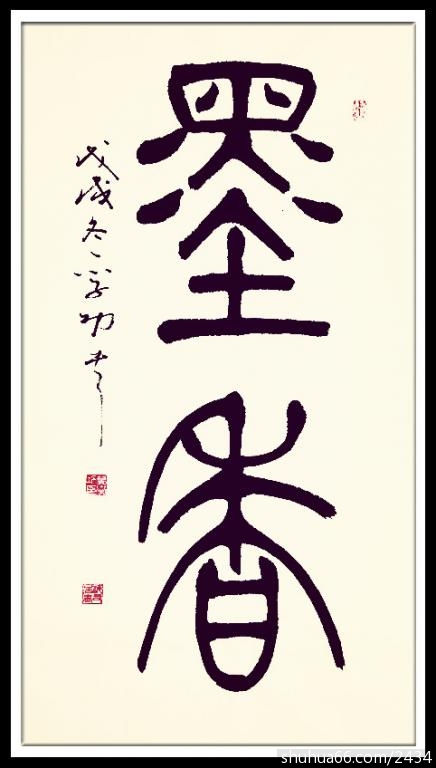 墨香
戊戌冬学功书
shuhua66.com/2434